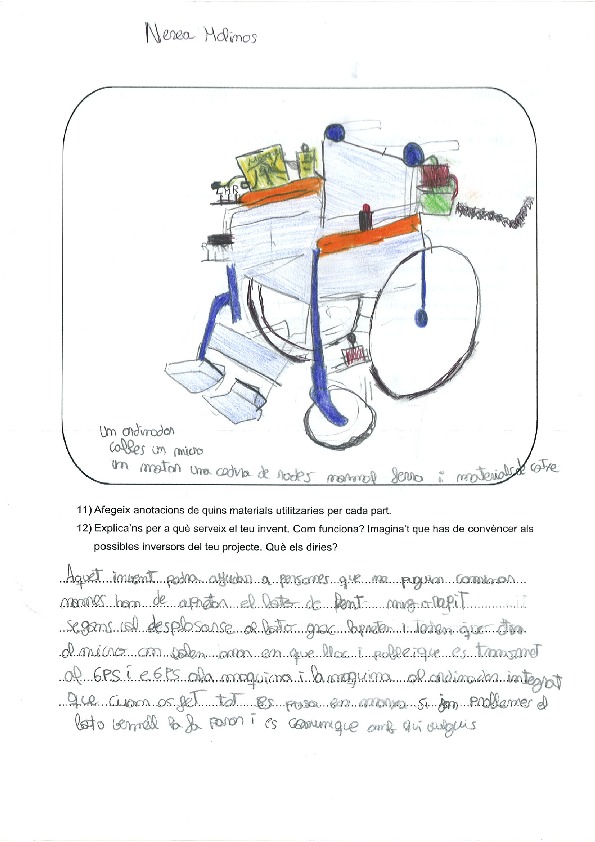 Nerea Molinos
un ordinador
cables un micro
un motor una cadira de rodes normal ferro i materials de cotxe
11) Afegeix anotacions de quins materials utilitzaries per cada part.
12) Explica'ns per a què serveix el teu invent. Com funciona? Imagina't que has de convèncer als
possibles inversors del teu projecte. Què els diries?
Aquet invent podra ajudar a persones que no puguin caminar
nomes ham de apretar el boto de lent mig o rapit
segons vol desplosarse al boto groc apreten i tenen que dir
al micro on volen anar en que lloc i poble i que es transmet
al GPS i e GPS a la maquina i la maquina al ordinador integrat
que cuan os fet tot es posa en marxa si ian problemes el
boto vermell la fa parar i es comunique amb qui vulguis